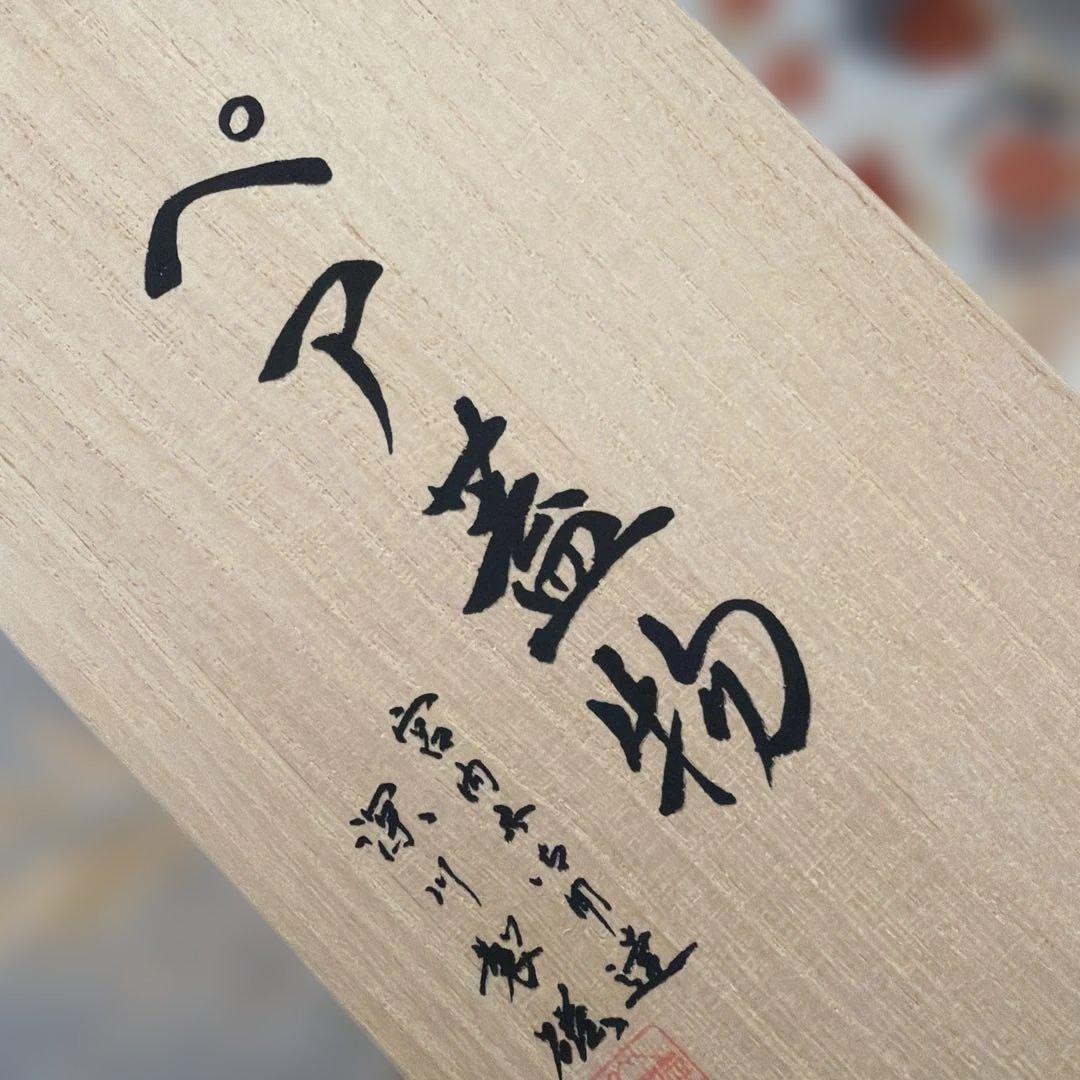 ペア蓋物
宮内庁御用達
深川製磁